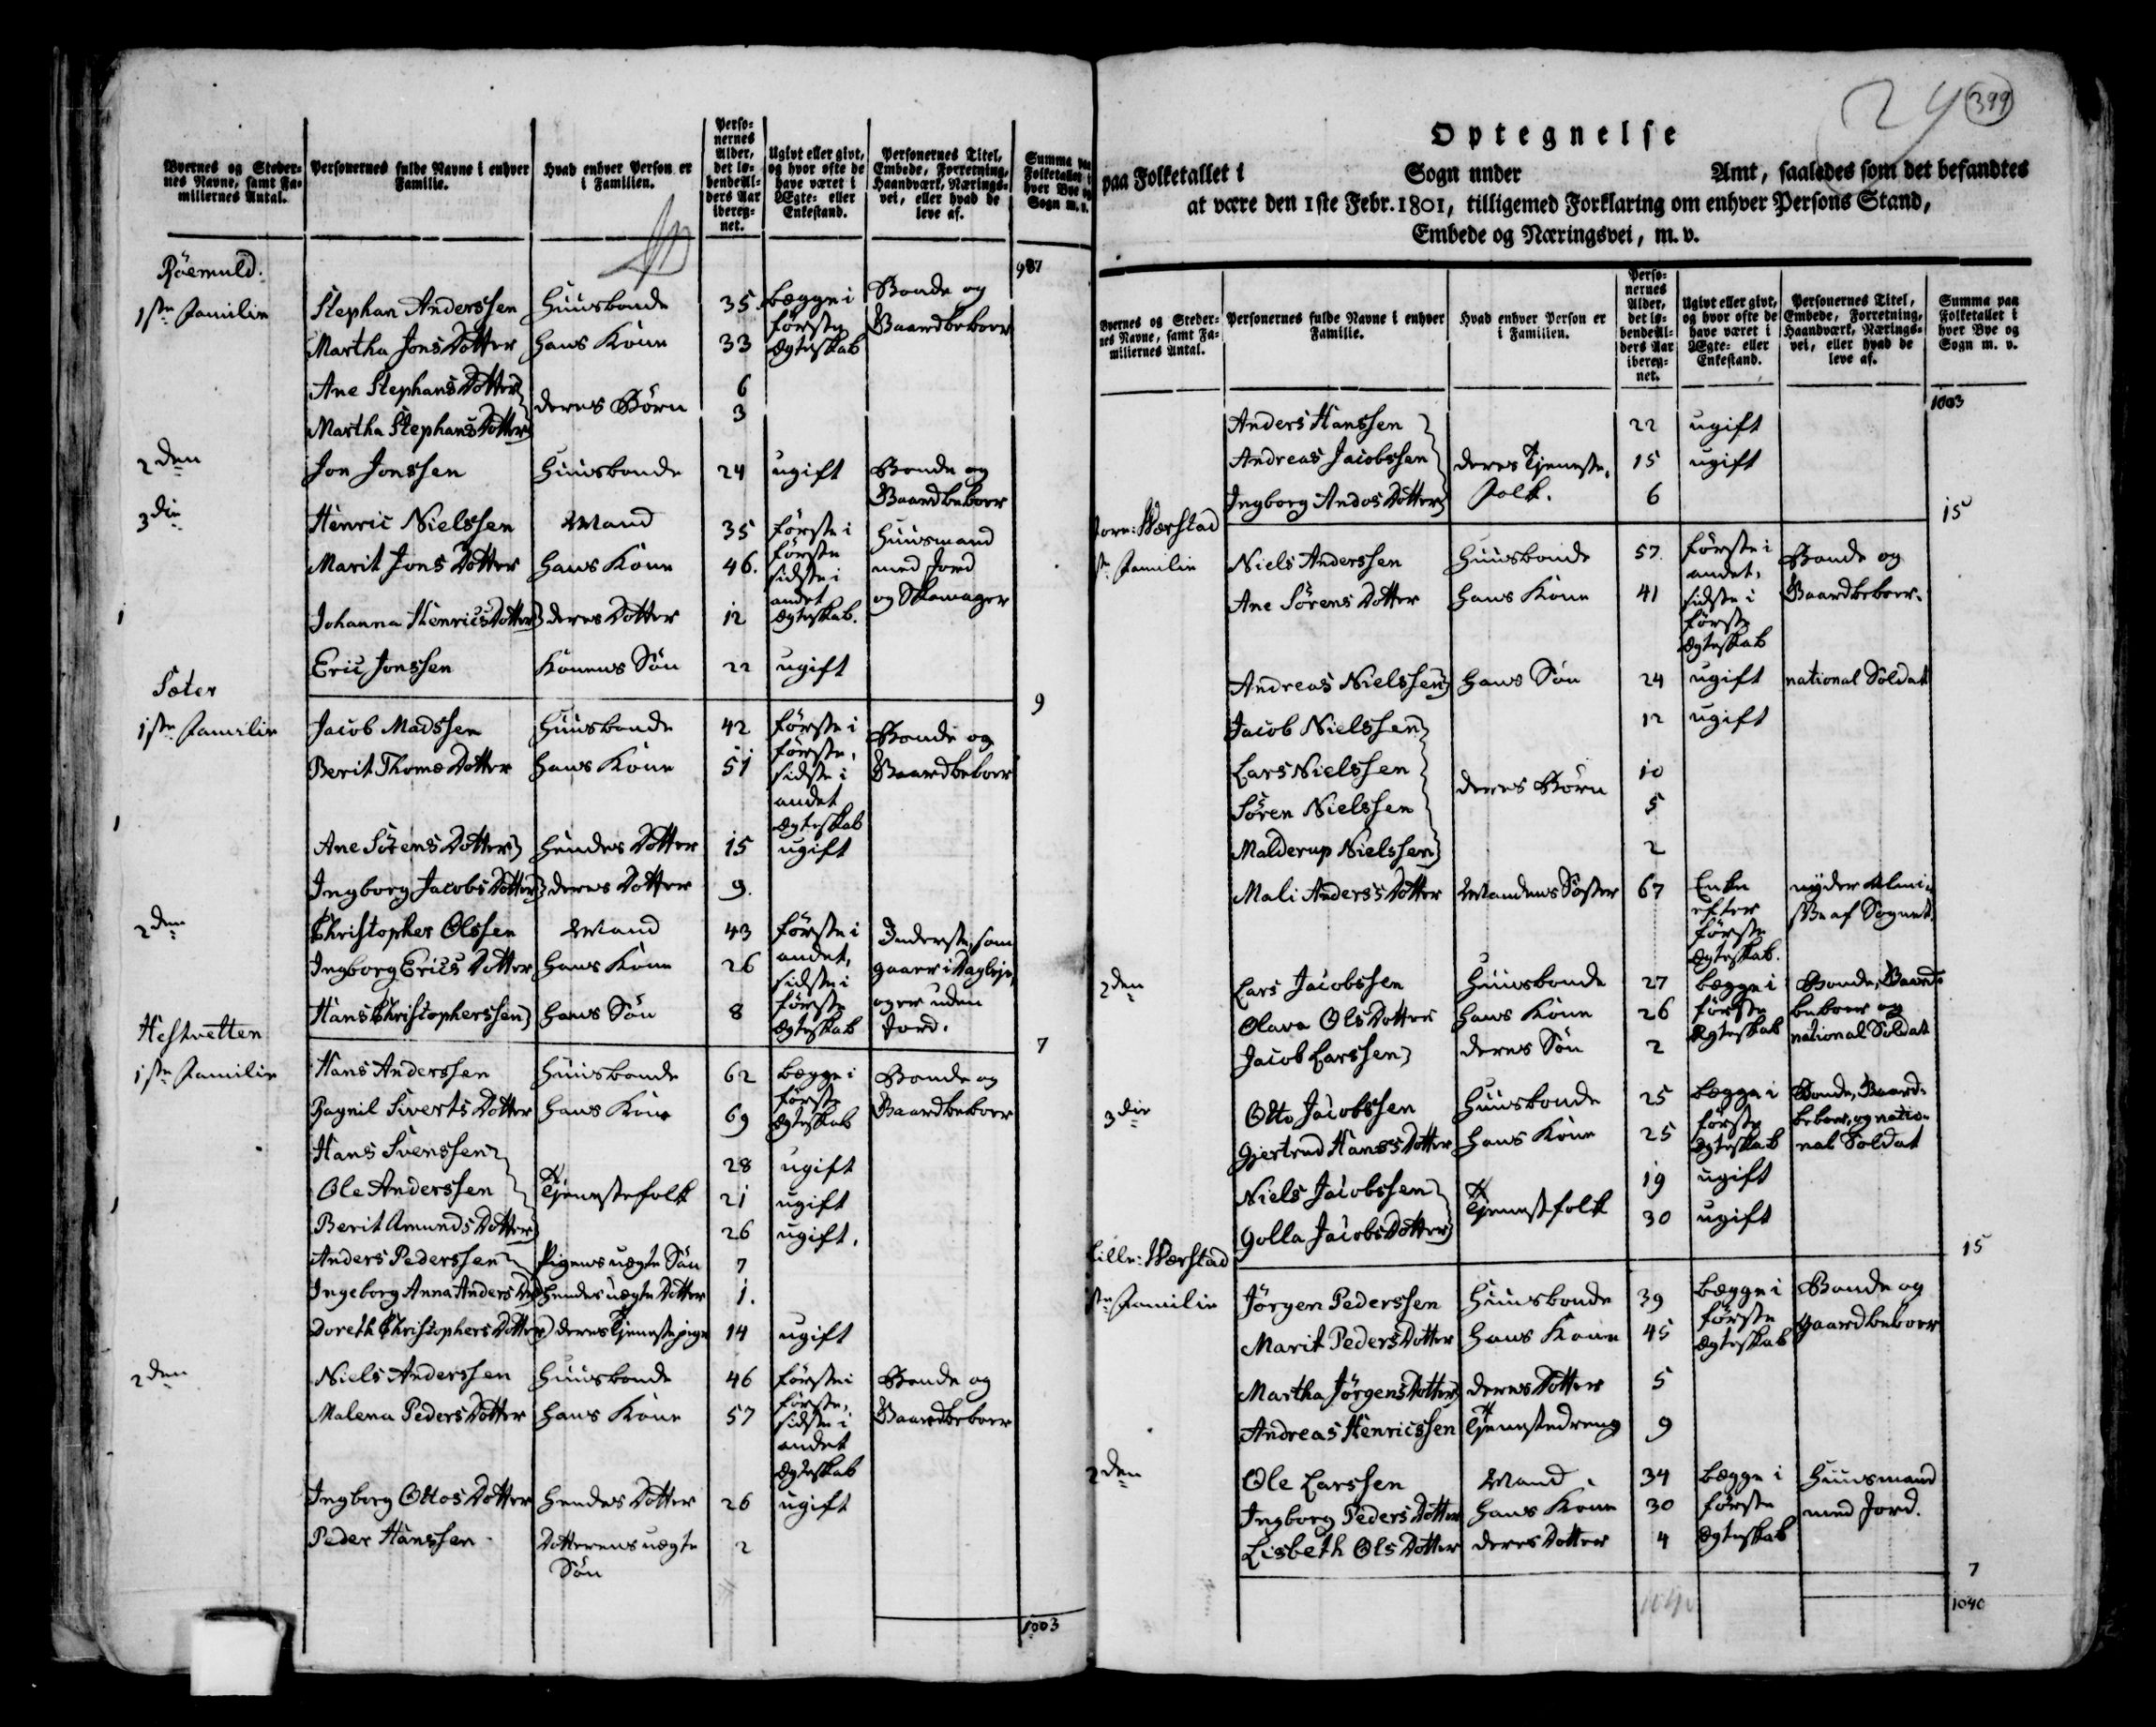 Byernes og Steder-
nes Navne, samt Fa-
miliernes Antal.
Personernes fulde Navne i enhver
Familie.
Hvad enhver Person er
i Familien.
Perso-
nernes
Alder,
det lø-
bende Al-
ders Aar
ibereg-
net.
Ugivt eller givt,
og hvor ofte de
have været i
Ægte- eller
Enkestand.
Personernes Titel,
Embede, Forretning,
Haandværk, Nærings-
vei, eller hvad de
leve af.
Summa paa
Folketallet i
hver Bye og
Sogn m. v.
987
Röemuld.
1ste Familie Stephan Anderssen Huusbonde 35. begge i Bonde og
Martha Jons Dotter Hans Kone 33 første Gaardbeboer
Ægteskab
Ane Stephans Dotter 6
deres Børn
Martha Stephans Dotter 3
2den Jon Jonssen Huusbonde 24 ugift Bonde og
Gaardbeboer
3die Henric Nielssen Mand 35 første i Huusmand
første
Marit Jons Dotter Hans Kone 46. sidste i med Jord
andet og Skomager
1 Johanna Henrics Dotter deres Dotter 12 Ægteskab.
Eric Jonssen Konens Søn 22 ugift
9
Sæter
1ste Familie Jacob Madssen Huusbonde 42 første i Bonde og
første,
Berit Thomæ Dotter Hans Kone 51 sidste i Gaardbeboer
andet
Ægteskab
1
Ane Sörens Dotter Hendes Dotter 15 ugift
Ingborg Jacobs Dotter deres Dotter 9.
2den Christopher Olssen Mand 43 første i Inderste, som
andet,
Ingborg Erics Dotter Hans Kone 26 sidste i gaaer i Dagleje,
første og er uden
Hans Christopherssen Hans Søn 8 Ægteskab Jord.
7
Hestvetten
1ste Familie Hans Anderssen Huusbonde 62 begge i Bonde og
første
Ragnil Siverts Dotter Hans Kone 69 Ægteskab Gaardbeboer
Hans Svenssen 28 ugift
1 Ole Anderssen Tjenestefolk 21 ugift
Berit Amunds Dotter 26 ugift.
Anders Pederssen Pigens uægte Søn 7
Ingeborg Anna Anders D. Hendes uægte Dotter 1.
Doreth Christophers Dotter deres Tjenestepige 14 ugift
2den Niels Anderssen Huusbonde 46 første i Bonde og
første,
Malena Peders Dotter Hans Kone 57 sidste i Gaardbeboer
andet
Ægteskab
Ingborg Ottos Dotter Hendes Dotter 26 ugift
Peder Hanssen Dotterens uægte 2
Søn
1003
24 399
Optegnelse
paa Folketallet i Sogn under Amt, saaledes som det befandtes
at være den 1ste Febr. 1801, tilligemed Forklaring om enhver Persons Stand,
Embede og Næringsvei, m. v.
Byernes og Steder-
nes Navne, samt Fa-
miliernes Antal.
Personernes fulde Navne i enhver
Familie.
Hvad enhver Person er
i Familien.
Perso-
nernes
Alder,
det lø-
bende Al-
ders Aar
ibereg-
net.
Ugivt eller givt,
og hvor ofte de
have været i
Ægte- eller
Enkestand.
Personernes Titel,
Embede, Forretning,
Haandværk, Nærings-
vei, eller hvad de
leve af.
Summa paa
Folketallet i
hver Bye og
Sogn m. v.
1003
Anders Hanssen 22 ugift
Andreas Jacobssen deres Tjeneste- 15 ugift
Ingborg Andos Dotter folk. 6
15
Store: Wærstad
1ste Familie Niels Anderssen Huusbonde 57. første i Bonde og
andet,
Ane Sörens Dotter Hans Kone 41 sidste i Gaardbeboer.
første
Ægteskab
Andreas Nielssen Hans Søn 24 ugift national Soldat
Jacob Nielssen 12 ugift
Lars Nielssen 10
deres Børn
Sören Nielssen 5
Malderup Nielssen 2
Mali Anders Dotter Mandens Søster 67 Enke nyder Almi-
efter sse af Sognet.
første
Ægteskab.
2den Lars Jacobssen Huusbonde 27 begge i Bonde, Gaard-
Olava Ols Dotter Hans Kone 26 første beboer og
Jacob Larssen deres Søn 2 Ægteskab national Soldat
3die Otto Jacobssen Huusbonde 25 begge i Bonde, Gaard-
første beboer, og natio-
Gjertrud Hanss Dotter Hans Kone 25 Ægteskab nal Soldat
Niels Jacobssen 19 ugift
Tjenestfolk
Golla Jacobs Dotter 30 ugift
15
Lille: Wærstad
1ste Familie Jörgen Pederssen Huusbonde 39 begge i Bonde og
første
Marit Peders Dotter Hans Kone 45 Ægteskab Gaardbeboer
Martha Jörgens Dotter deres Dotter 5
Andreas Henricssen Tjenestedreng 9
2den Ole Larssen Mand 34 begge i Huusmand
Ingborg Peders Dotter Hans Kone 30 første med Jord.
Lisbeth Ols Dotter deres Dotter 4 Ægteskab
7
1040 1040